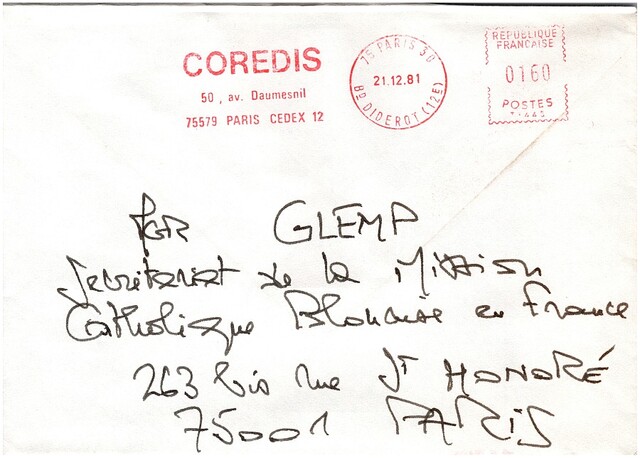 COREDIS
50, av. Daumesnil
75579 PARIS CEDEX 12
75 PARIS 36
21.12.81
BD DIDEROT (12E)
REPUBLIQUE
FRANCAISE
0160
POSTES
GLEMP
Secrétariat de la Mission
Catholique Polonaise en France
263 bis rue St HONORÉ
75001 PARIS